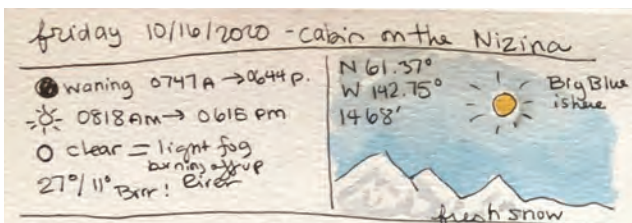 friday 10/16/2020 - cabin on the Nizina
waning 0747A → 0644 p.
0818 AM → 0618 pm
clear = light fog
burning off up
27°/11° Brrr!
N 61.37°
W 142.75°
1468'
Big Blue
is here
fresh snow